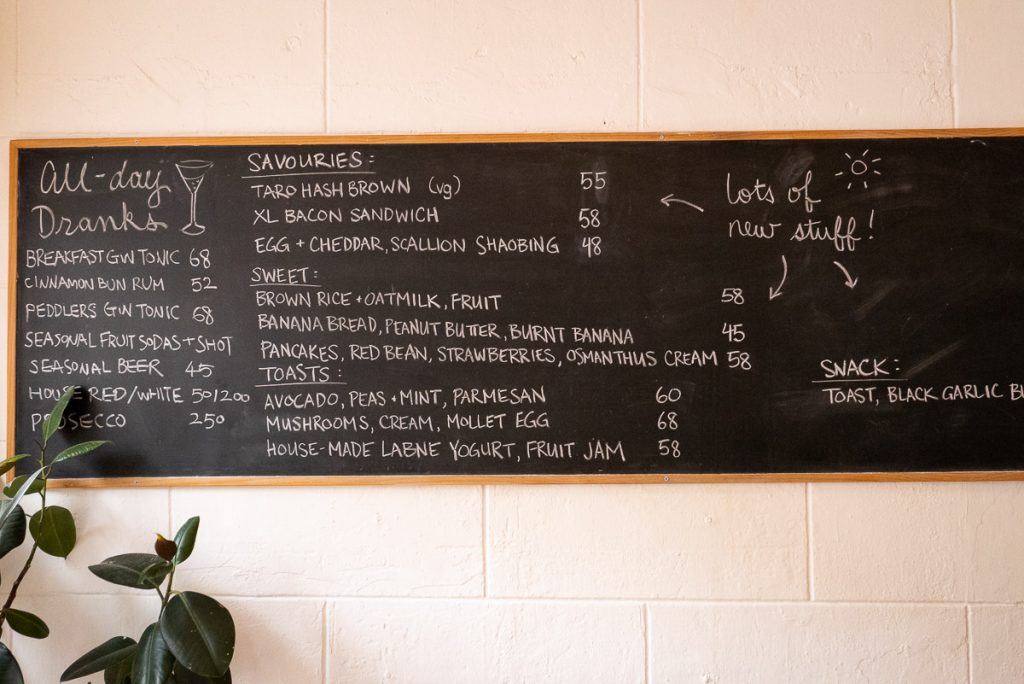 All-day
Dranks
BREAKFAST GIN TONIC 68
CINNAMON BUN RUM 52
PEDDLERS GIN TONIC 68
SEASONAL FRUIT SODAS + SHOT
SEASONAL BEER 45
HOUSE RED/WHITE 50/200
PROSECCO 250
SAVOURIES:
TARO HASH BROWN (vg) 55
XL BACON SANDWICH 58
EGG + CHEDDAR, SCALLION SHAOBING 48
SWEET:
BROWN RICE + OATMILK, FRUIT 58
BANANA BREAD, PEANUT BUTTER, BURNT BANANA 45
PANCAKES, RED BEAN, STRAWBERRIES, OSMANTHUS CREAM 58
TOASTS:
AVOCADO, PEAS + MINT, PARMESAN 60
MUSHROOMS, CREAM, MOLLET EGG 68
HOUSE-MADE LABNE YOGURT, FRUIT JAM 58
lots of
new stuff!
SNACK:
TOAST, BLACK GARLIC